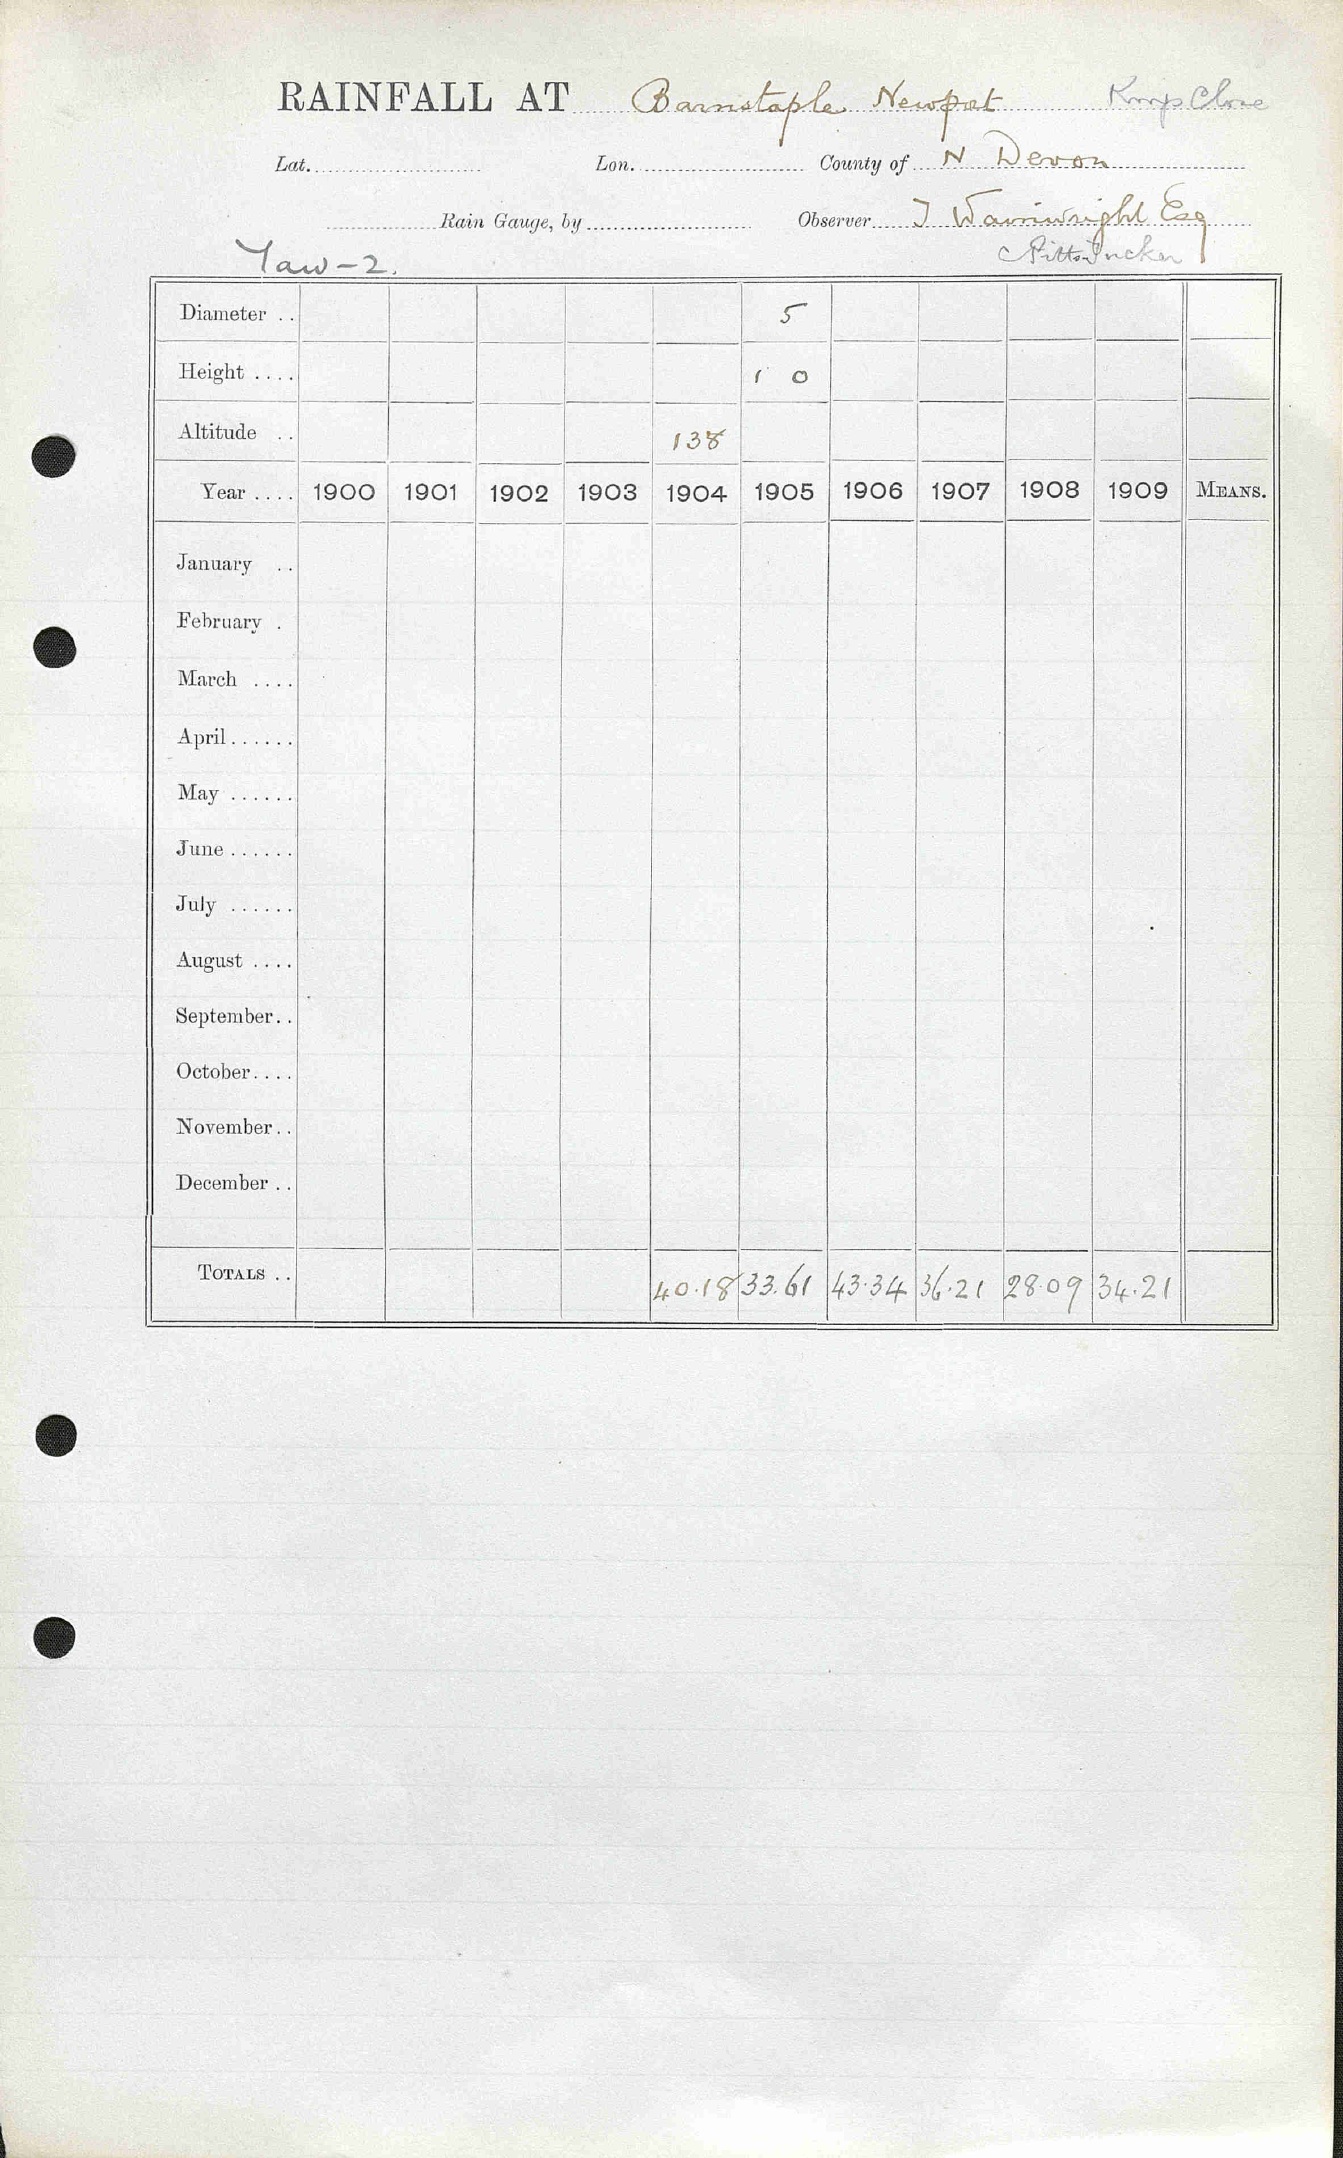 RAINFALL AT Barnstaple Newport Kings Close
Lat. Lon. County of N Devon
Rain Gauge, by Observer J Wainwright Esq
Taw-2. Pitts Tucker
Diameter .. 5
Height .... 1 0
Altitude .. 138
Year .... 1900 1901 1902 1903 1904 1905 1906 1907 1908 1909 MEANS.
January ..
February .
March ....
April......
May ......
June ......
July ......
August ....
September..
October....
November..
December ..
TOTALS .. 40.18 33.61 43.34 36.21 28.09 34.21